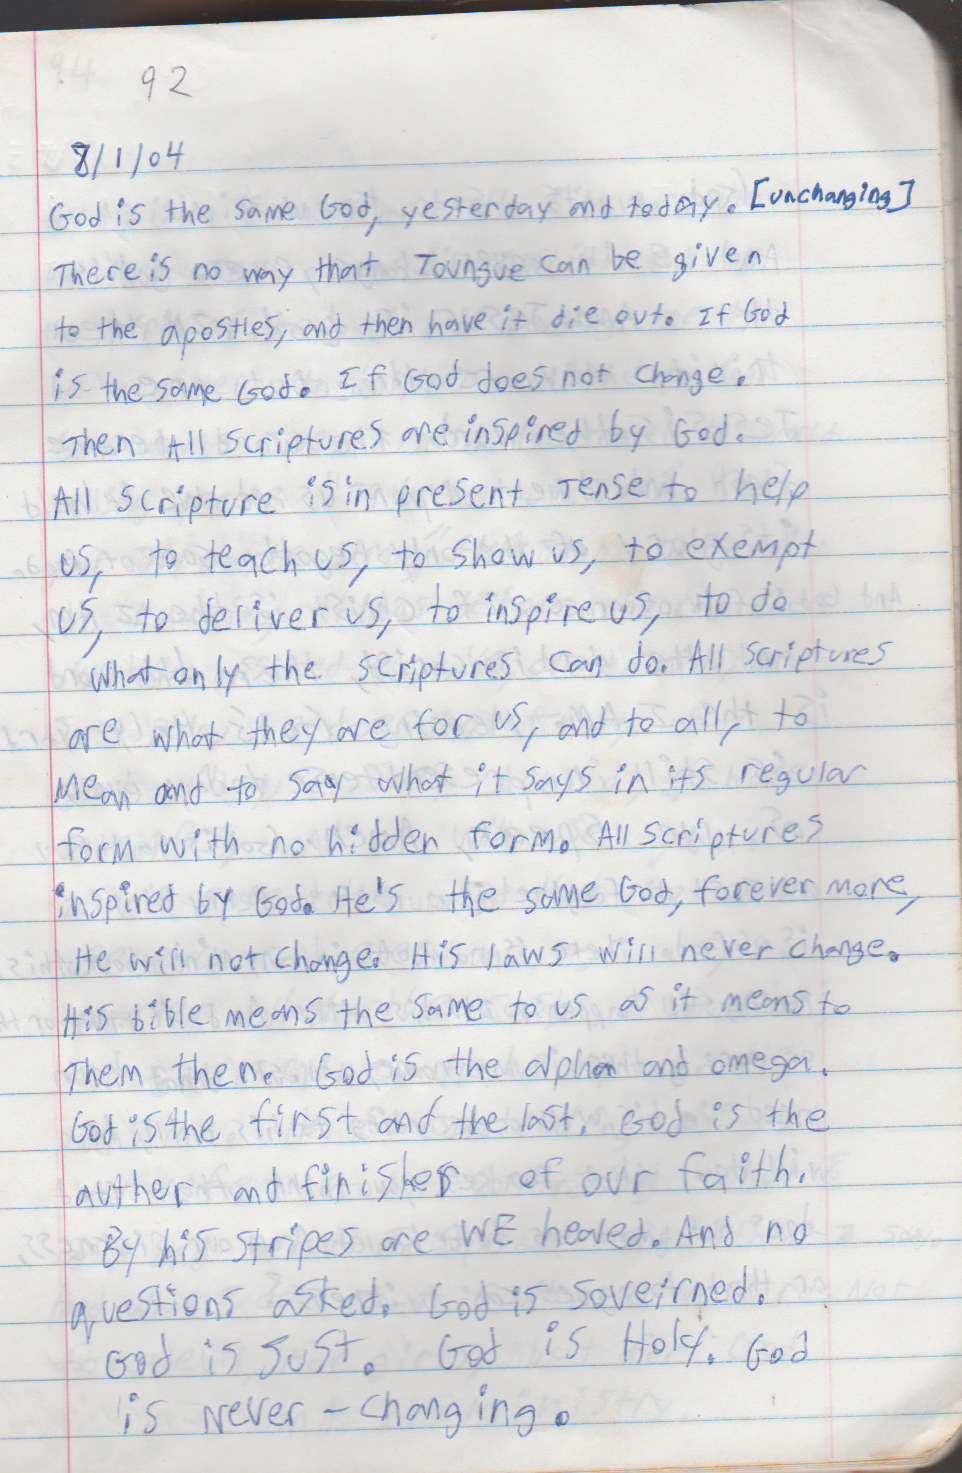 92
8/1/04
God is the same God, yesterday and today. [unchanging]
There is no way that Toungue can be given
to the apostles, and then have it die out. If God
is the same God. If God does not change.
Then All scriptures are inspired by God.
All scripture is in present Tense to help
us, to teach us, to show us, to exempt
us, to deliver us, to inspire us, to do
what only the scriptures can do. All scriptures
are what they are for us, and to all, to
mean and to say what it says in its regular
form with no hidden form. All scriptures
inspired by God. He's the same God, forever more,
He will not change. His laws will never change.
His bible means the same to us as it means to
Them then. God is the alpha and omega.
God is the first and the last. God is the
auther and finisher of our faith.
By his stripes are WE healed. And no
questions asked. God is soveirned.
God is Just. God is Holy. God
is Never-changing.